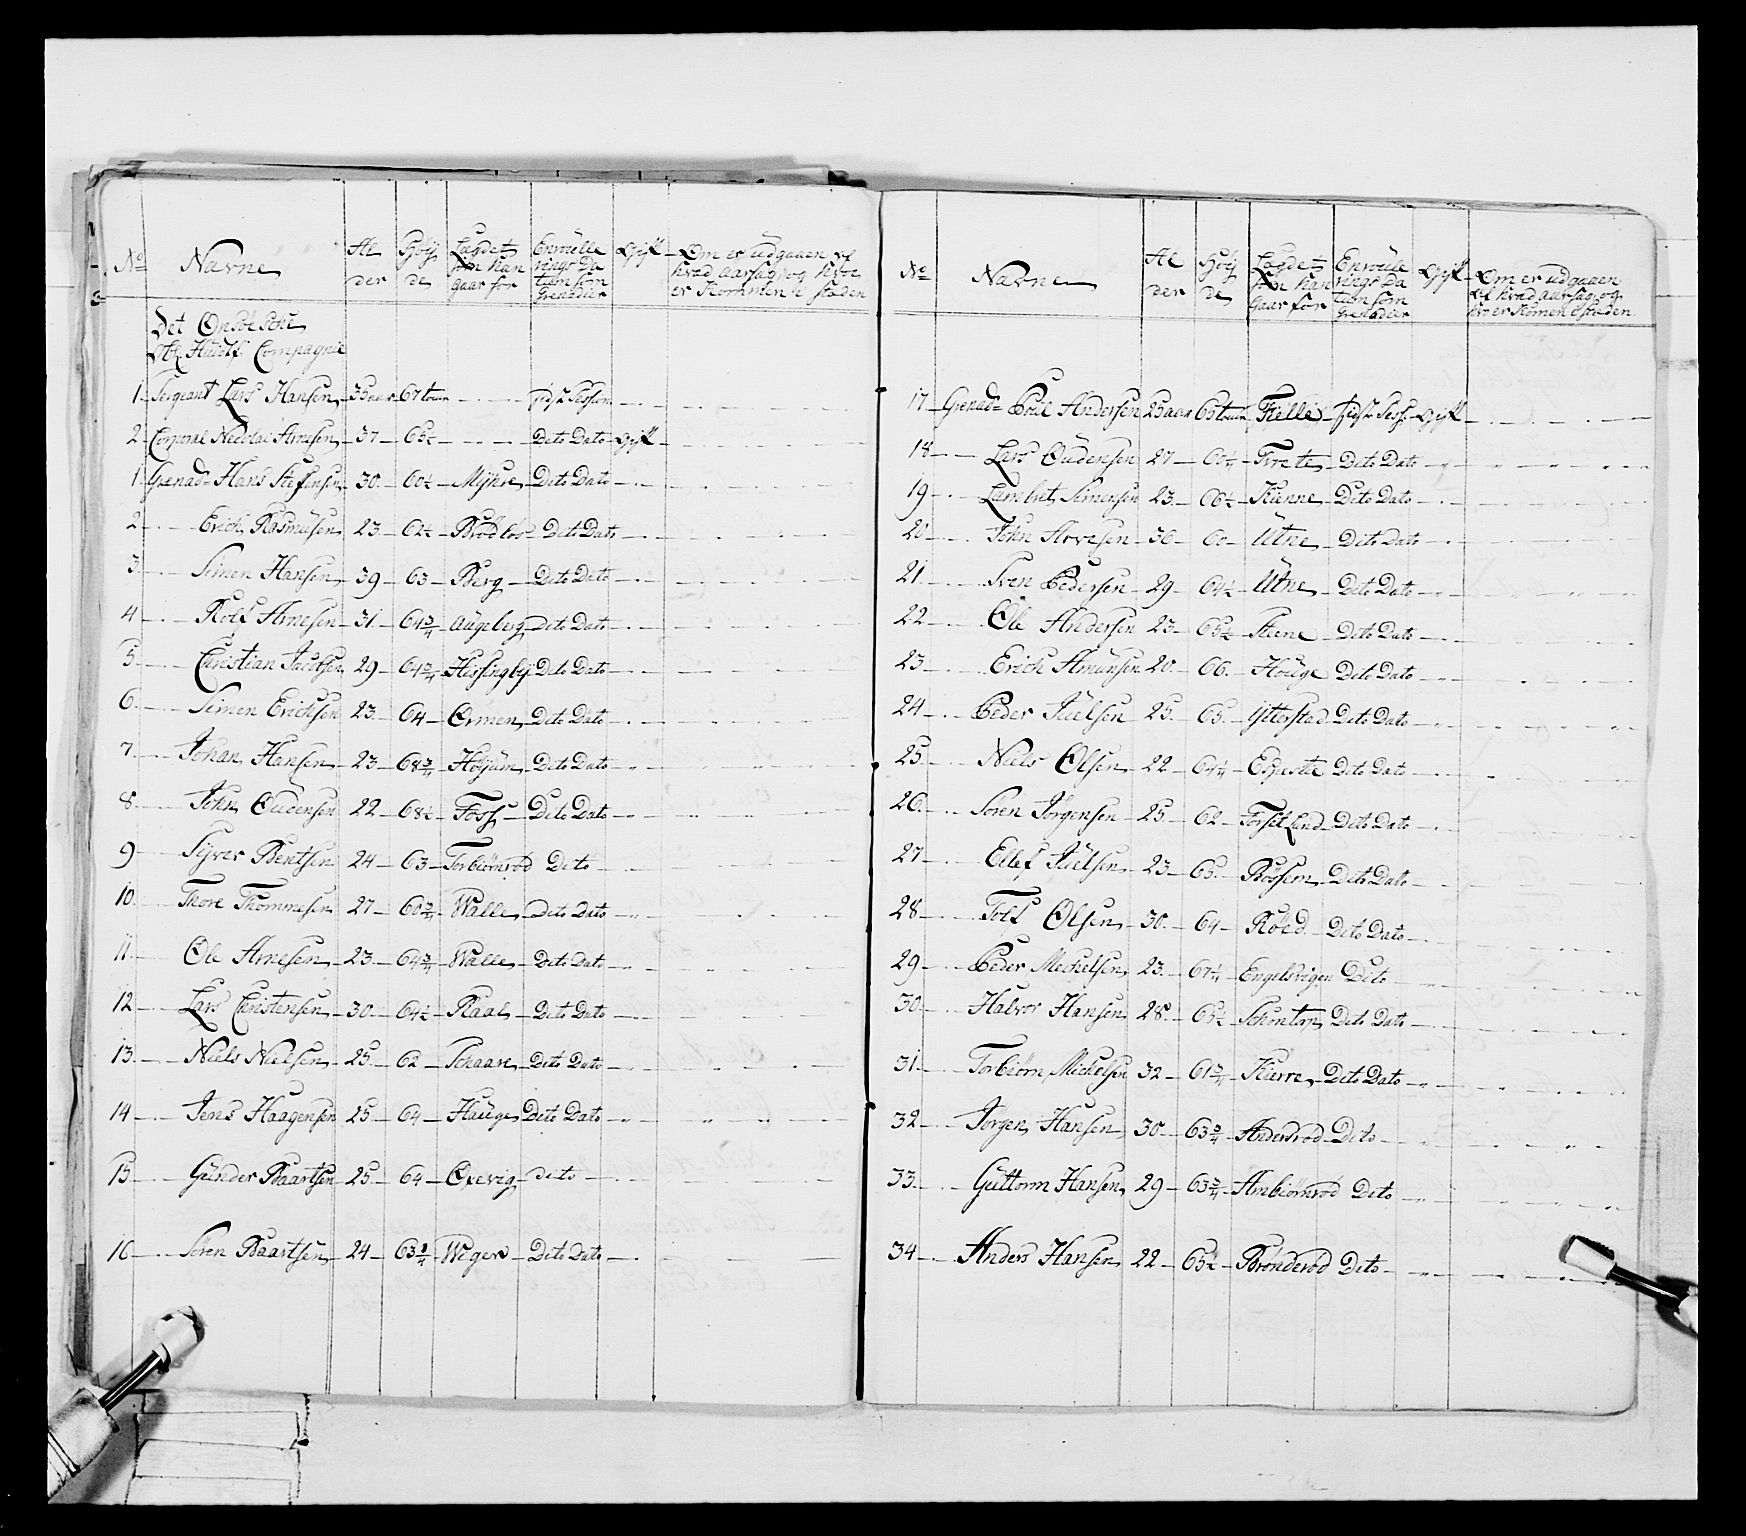 No Navne Alder Höÿde Lægdet som han gaar for Enroulleringsdation som Grenadier Gift Om er udgaaen af hvad aarsag og hvo er Kommen i staden
Det Onsöiske
Compagnie
1 Sergeant Lars Hansen 35 aar 67 tom sidste Session
2 Corporal Nicolai Arnesen 37 65½ Dito Dato Gift
1 Grenad- Hans Stefensen 30 60½ Myhre Dito Dato
2 Erich Rasmusen 23 62½ Brödlös Dito Dato
3 Simen Hansen 39 63 Berg Dito Dato
4 Rolf Arnesen 31 64¾ Augeberg Dito Dato
5 Christian Jacobsen 29 64¾ Hissingbÿ Dito Dato
6 Simen Erichsen 23 64 Ormen Dito Dato
7 Johan Hansen 23 68¾ Höÿum Dito Dato
8 John Oudensen 22 68½ Foss Dito Dato
9 Sÿver Bentsen 24 63 Torbiörnröd Dito
10 Thore Thommesen 27 66¾ Walle Dito Dato
11 Ole Arnesen 23 64¾ Walle Dito Dato
12 Lars Christensen 30 64½ Raae Dito Dato
13 Niels Nielsen 25 62 Schaare Dito Dato
14 Jens Haagensen 25 64 Hauge Dito Dato
15 Gunder Baartsen 25 64 Oxevig dito
16 Sören Baartsen 24 63¾ Wiger Dito Dato
No Navne Alder Höÿde Lægdet som han gaar for Enroulleringsdation som Grenadier Gift Om er udgaaen af hvad aarsag og hvo er Komen i staden
17 Grenad- Poul Andersen 25 aar 65 tom Kielle sidste Sess- Gift
18 Lars Oudensen 27 60¼ Tvete Dito Dato
19 Lambret Simensen 23 66½ Kienne Dito Dato
20 John Arvesen 36 60 Utne Dito Dato
21 Sven Pedersen 29 64½ Utne Dito Dato
22 Ole Andersen 23 65½ Steene Dito Dato
23 Erich Amunsen 20 66 Houge Dito Dato
24 Peder Juelsen 25 65 Ÿtterstad Dito Dato
25 Niels Olsen 22 64¼ Dito Dato
26 Sören Jörgensen 25 62 Forsetlund Dito Dato
27 Ellef Juelsen 23 65 Rössem Dito Dato
28 Tolf Olsen 30 64 Röed Dito Dato
29 Peder Mechelsen 23 67¼ Engelsvigen Dito
30 Halvor Hansen 28 65½ Schöntorp Dito Dato
31 Torbiörn Michelsen 32 61¾ Kierre Dito Dato
32 Jörgen Hansen 30 63¾ Andersröd Dito
33 Guttorm Hansen 29 63¾ Ambiörnröd Dito
34 Anders Hansen 22 65½ Brönderöd Dito